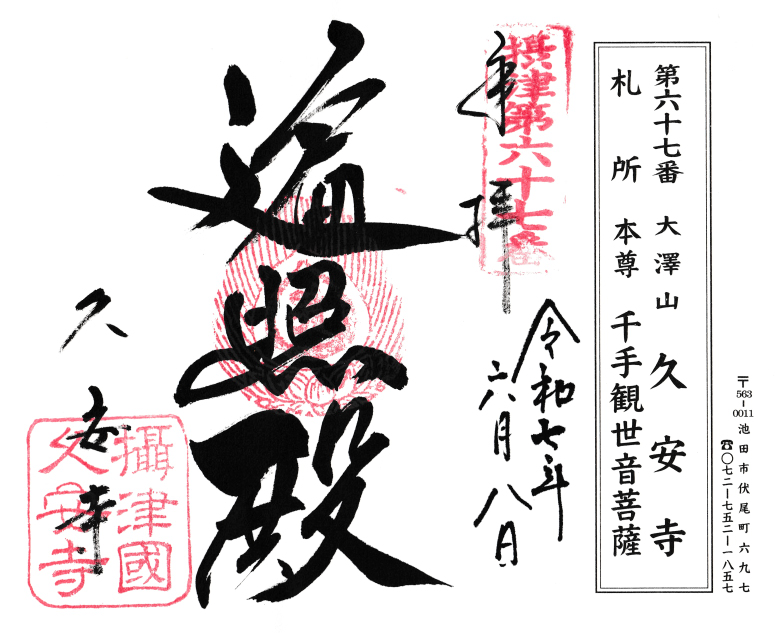 〒563-0011 池田市伏尾町六九七
☎〇七二ー七五二ー一八五七
第六十七番 大澤山 久安寺
札所 本尊 千手観世音菩薩
摂津第六十七番
奉拝
令和七年
六月八日
遍照殿
久安寺
攝津國
久安寺